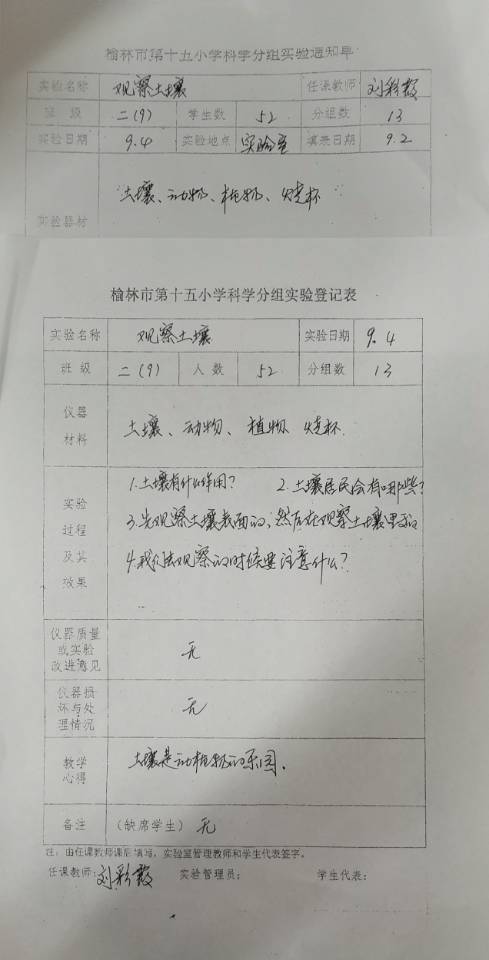 榆林市第十五小学科学分组实验通知单
实验名称 观察土壤 任课教师 刘彩霞
班 级 二(9) 学生数 52 分组数 13
实验日期 9.4 实验地点 实验室 填表日期 9.2
实验器材 土壤、动物、植物、烧杯
榆林市第十五小学科学分组实验登记表
实验名称 观察土壤 实验日期 9.4
班 级 二(9) 人 数 52 分组数 13
仪器
材料
土壤、动物、植物 烧杯.
实验
过程
及其
效果
1.土壤有什么作用? 2.土壤居民会有哪些?
3.先观察土壤表面的,然后在观察土壤里面的
4.我们去观察的时候要注意什么?
仪器质量
或实验
改进意见
无
仪器损
坏与处
理情况
无
教学
心得
土壤是动植物的乐园.
备注 (缺席学生) 无
注:由任课教师课后填写,实验室管理教师和学生代表签字。
任课教师:刘彩霞 实验管理员: 学生代表: